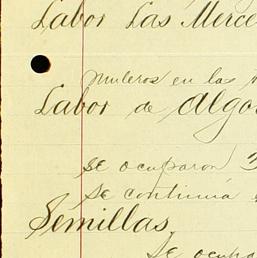 Labor Las Merce
muleros en las
Labor de Algo
se ocuparon 3
se continúa
Semillas
se ocupa